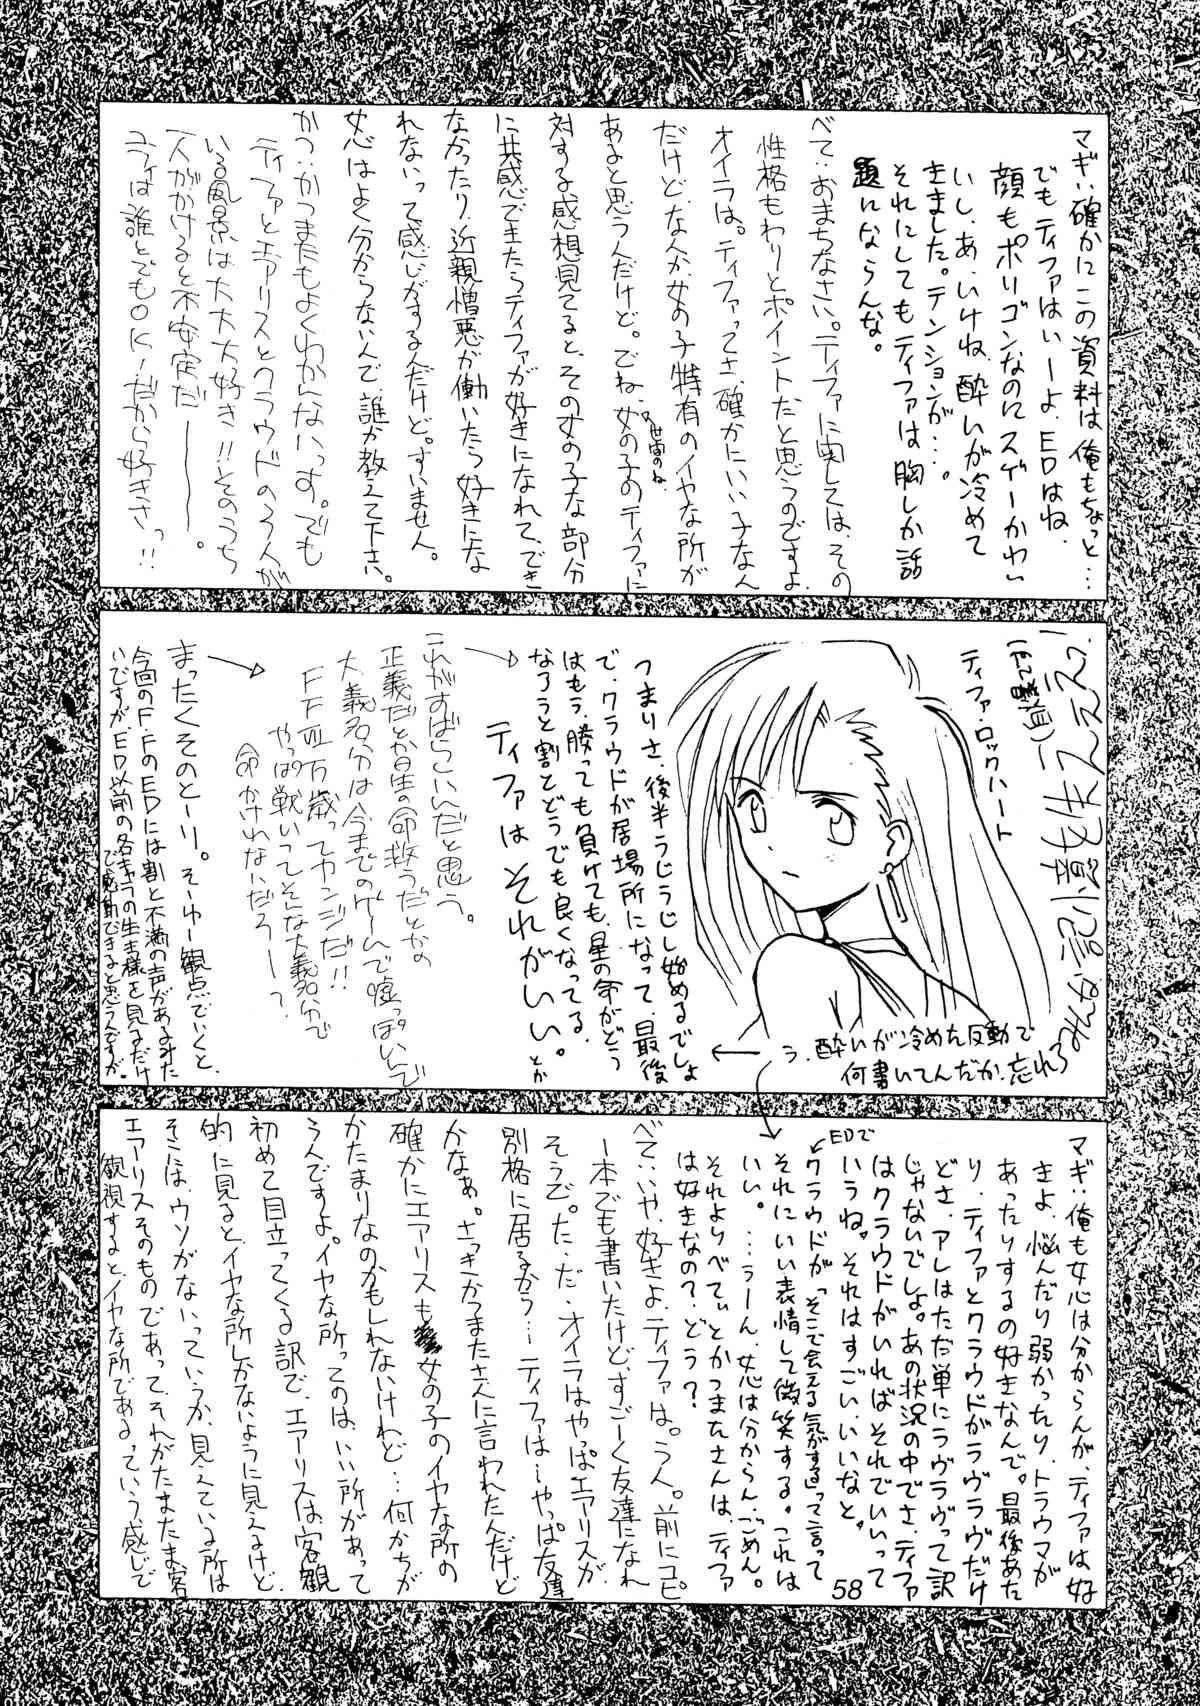 マギ‥確かにこの資料は俺もちょっと…
でもティファはいーよ、EDはね、
顔もポリゴンなのにスゲーかわい
いし、あ、いけね、酔いが冷めて
きました。テンションが…。
それにしてもティファは胸しか話
題にならんな。
べて‥おまちなさい。ティファに関しては、その
性格もわりとポイントだと思うのですよ
オイラは。ティファってさ、確かにいい子なん
だけど、な人か、女の子特有のイヤな所が
あると思うんだけど。でね、女の子のティファに
世間のね
対する感想見てると、その女の子な部分
に共感できたらティファが好きになれて、でき
なかったり、近親憎悪が働いたら好きにな
れないって感じがするんだけど。すいません。
女心はよく分からない人で、誰か教えて下さい。
かつ‥かつまたもよくわかんないっす。でも
ティファとエアリスとクラウドの3人が
いる風景は大大大好き!!そのうち
一人がかけると不安定だ―――。
ユフィは誰とでもOK!だから好きさっ!!
ティファ・ロックハート
つまりさ、後半うじうじし始めるでしょ
で、クラウドが居場所になって、最後
はもう、勝っても負けても、星の命がどう
なろうと割とどうでも良くなってる。
ティファはそれがいい。とか
う、酔いが冷めた反動で
何書いてんだか、忘れろ
これがすばらしいんだと思う。
正義だとか星の命救うだとかの
大義名分は今までのゲームで嘘っぽいんで
FFⅦ万歳ってカンジだ!!
やっぱ戦いってそんな大義名分で
命かけれないだろー?
まったくそのとーり。そーゆー観点でいくと、
今回のF.FのEDには割と不満の声があるみた
いですが、ED以前の各キャラの生き様を見るだけ
で感動できると思うんですが。
マギ‥俺も女心は分からんが、ティファは好
きよ、悩んだり弱かったり、トラウマが
あったりするの好きなんで。最後あた
り、ティファとクラウドがラヴラヴだけ
どさ、アレはただ単にラヴラヴって訳
じゃないでしょ。あの状況の中でさ、ティファ
はクラウドがいればそれでいいって
いうね。それはすごい、いいなと。
EDで
クラウドが「そこで会える気がする」って言って
それにいい表情して微笑する。これは
いい。…うーん、女心は分からん、ごめん。
それよりべてぃとかつまたさんは、ティファ
は好きなの?、どう?
べて‥いや、好きよ、ティファは。う人。前にコピ
ー本でも書いたけど、すごーく友達になれ
そうで。ただ、オイラはやっぱエアリスが、
別格に居るから…ティファは…やっぱ友達
かなぁ。さっきかつまたさんに言われたんだけど
確かにエアリスも女の子のイヤな所の
かたまりなのかもしれないけれど…何かちが
うんですよ。イヤな所ってのは、いい所があって
初めて目立ってくる訳で、エアリスは、客観
的に見ると、イヤな所しかないように見えるけど、
そこには、ウソがないっていうか、見えている所は
エアリスそのものであって、それがたまたま客
観視すると、イヤな所であるっていう感じで
58